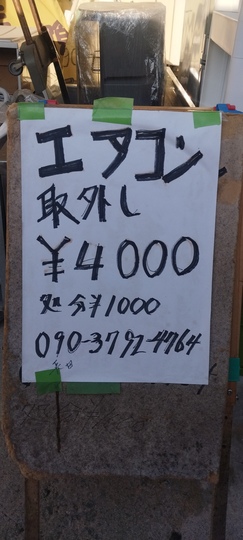 エアコン
取外し
¥4000
処分¥1000
090-3792-4764